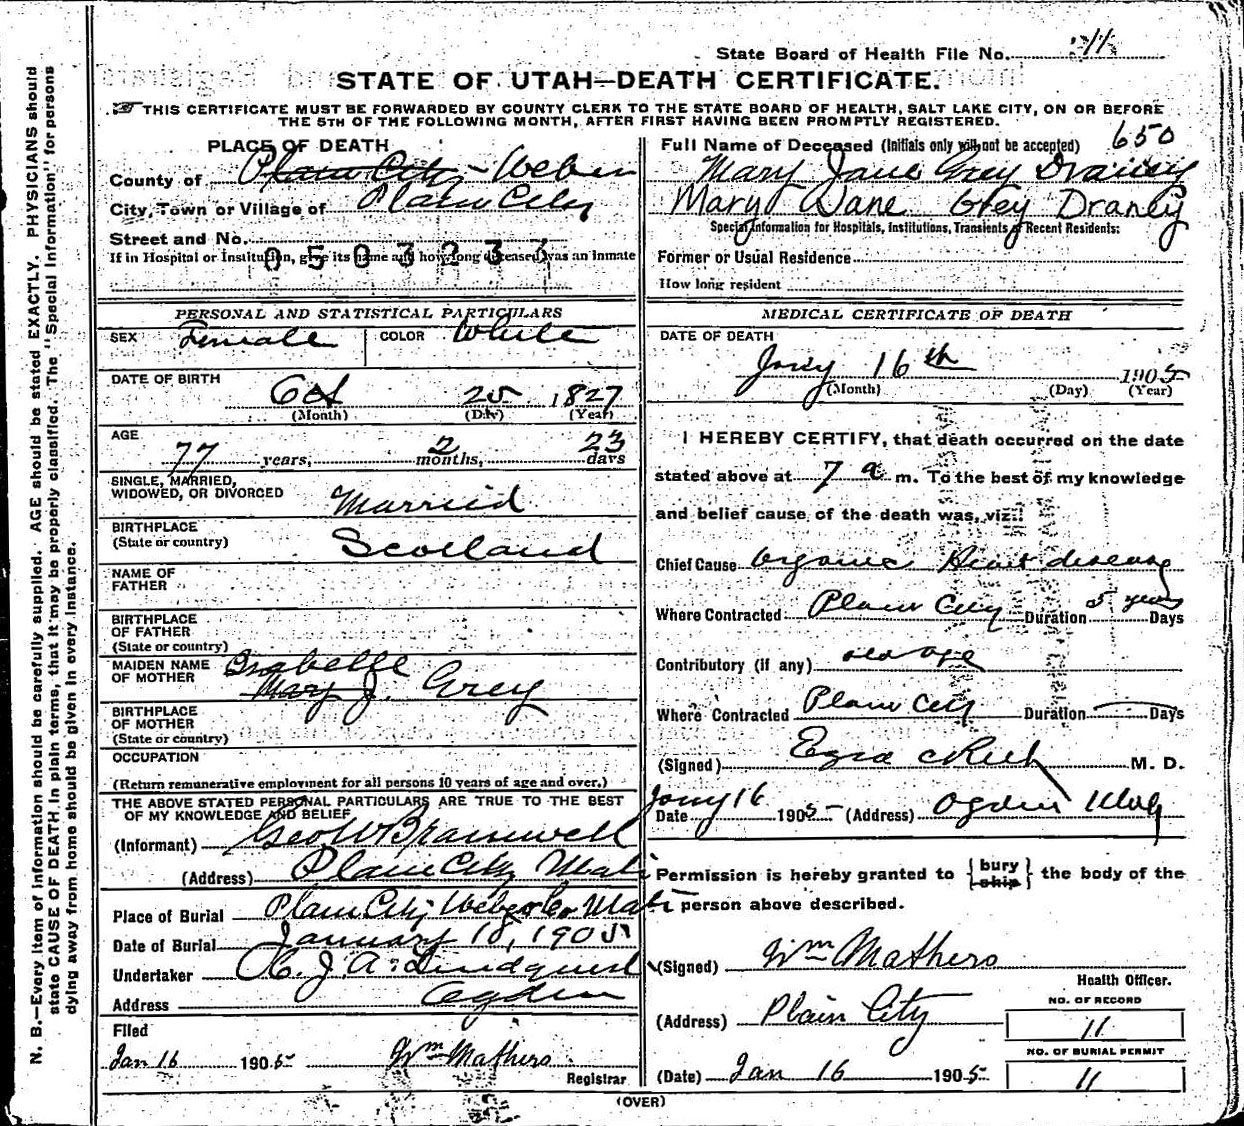 State Board of Health File No. 11
STATE OF UTAH—DEATH CERTIFICATE.
THIS CERTIFICATE MUST BE FORWARDED BY COUNTY CLERK TO THE STATE BOARD OF HEALTH, SALT LAKE CITY, ON OR BEFORE
THE 5TH OF THE FOLLOWING MONTH, AFTER FIRST HAVING BEEN PROMPTLY REGISTERED.
PLACE OF DEATH
County of Plain City - Weber
City, Town or Village of Plain City
Street and No.
If in Hospital or Institution, give its name and how long deceased was an inmate
0503233
Full Name of Deceased (Initials only will not be accepted) 650
Mary Jane Grey Draney
Mary Jane Grey Draney
Special Information for Hospitals, Institutions, Transients or Recent Residents:
Former or Usual Residence
How long resident
PERSONAL AND STATISTICAL PARTICULARS
SEX Female COLOR White
DATE OF BIRTH
Oct 25 1827
(Month) (Day) (Year)
AGE
77 years, 2 months, 23 days
SINGLE, MARRIED,
WIDOWED, OR DIVORCED Married
BIRTHPLACE
(State or country) Scotland
NAME OF
FATHER
BIRTHPLACE
OF FATHER
(State or country)
MAIDEN NAME Isabelle
OF MOTHER Mary J. Grey
BIRTHPLACE
OF MOTHER
(State or country)
OCCUPATION
(Return remunerative employment for all persons 10 years of age and over.)
THE ABOVE STATED PERSONAL PARTICULARS ARE TRUE TO THE BEST
OF MY KNOWLEDGE AND BELIEF
(Informant) Geo W Bramwell
(Address) Plain City Utah
Place of Burial Plain City Weber Co. Utah
Date of Burial January 18, 1905
Undertaker J. A. Lindquist
Address Ogden
Filed
Jan 16 1905 Wm Mathers
Registrar
MEDICAL CERTIFICATE OF DEATH
DATE OF DEATH
Jany 16th 1905
(Month) (Day) (Year)
I HEREBY CERTIFY, that death occurred on the date
stated above at 7 a m. To the best of my knowledge
and belief cause of the death was, viz:
Chief Cause Organic Heart disease
Where Contracted Plain City Duration 5 years Days
Contributory (if any) old age
Where Contracted Plain City Duration Days
(Signed) Ezra M. D.
Jany 16
Date 1905 (Address) Ogden Utah
Permission is hereby granted to {bury ship} the body of the
person above described.
(Signed) Wm Mathers
Health Officer.
(Address) Plain City
NO. OF RECORD
11
NO. OF BURIAL PERMIT
11
(Date) Jan 16 1905
(OVER)
N. B.—Every item of information should be carefully supplied. AGE should be stated EXACTLY. PHYSICIANS should
state CAUSE OF DEATH in plain terms, that it may be properly classified. The "Special Information" for persons
dying away from home should be given in every instance.